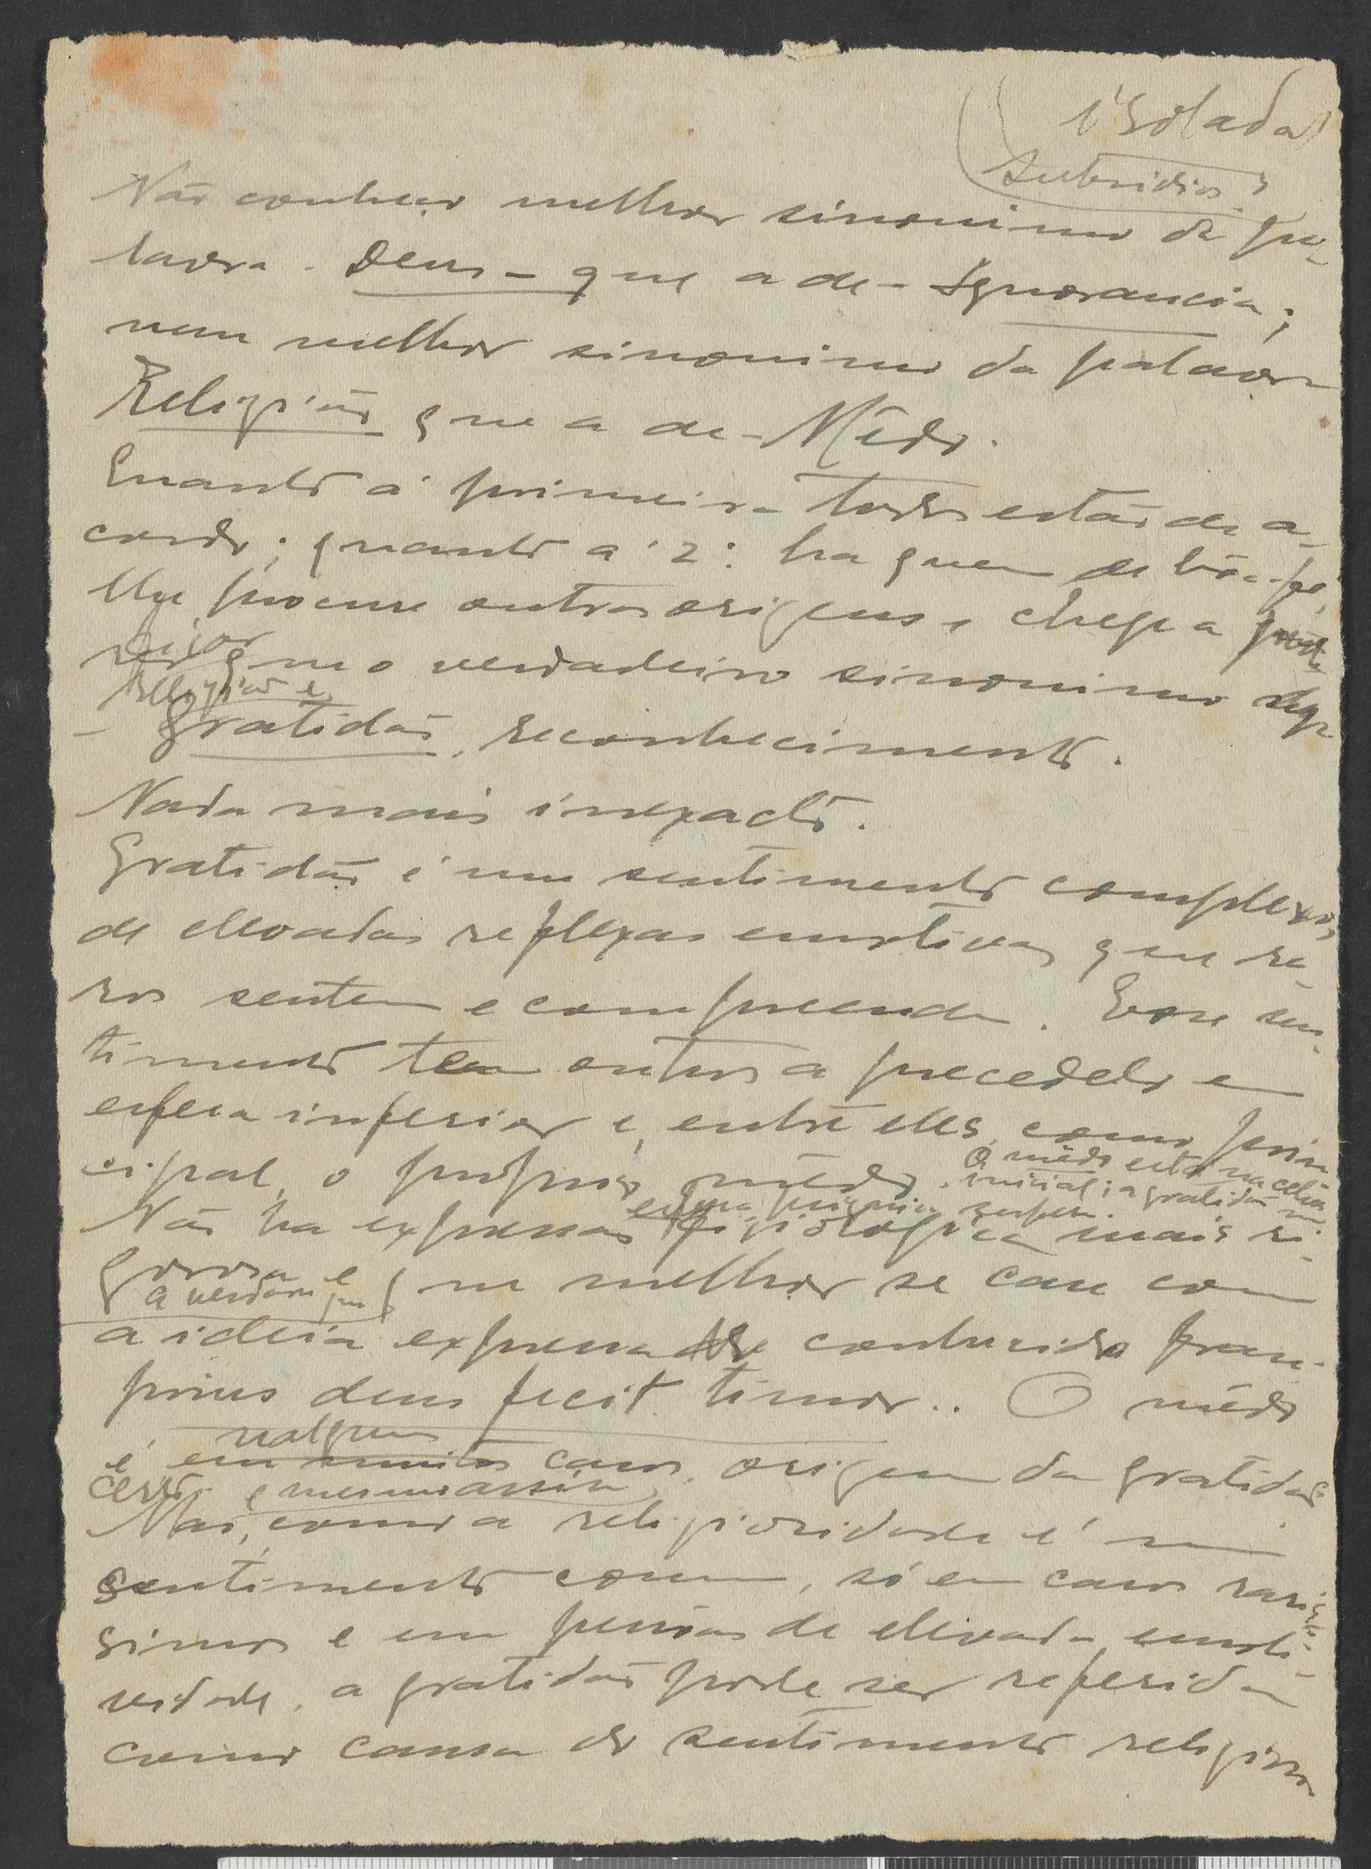 isolada
subsidios?
Não conheço melhor sinonimo da pa-
lavra - Deus - que a de - Ignorancia;
nem melhor sinonimo da palavra
Religião que a de - Mêdo.
Quanto á primeira todos estão de a-
cordo; quanto a 2: ha quem de bôa-fé,
lhe procure outras origens, e chega a
dizer que o verdadeiro sinonimo
Religião é
- Gratidão, reconhecimento.
Nada mais inexacto.
Gratidão é um sentimento complexo,
de elevadas reflexas emotivas que ra-
ros sentem e compreendem. Esse sen-
timento tem outros a precedel-o em
esfera inferior e, entre eles, como prin-
cipal, o proprio mêdo. O mêdo está na celula
inicial; a gratidão na
esfera psiquica superior.
Não ha expressão fisiologica mais ri-
gorosa e que melhor se case com
a verdade que
a ideia expressa conhecida frase:
primus deus fecit timor.. O mêdo
nalguns
é em muitos casos, origem da gratidão
certo. e mesmo assim
Mas, como a religiosidade é um
sentimento comum, só em casos raris-
simos e em pessoas de elevada emoti-
vidade, a gratidão pode ser referida
como causa do sentimento religioso